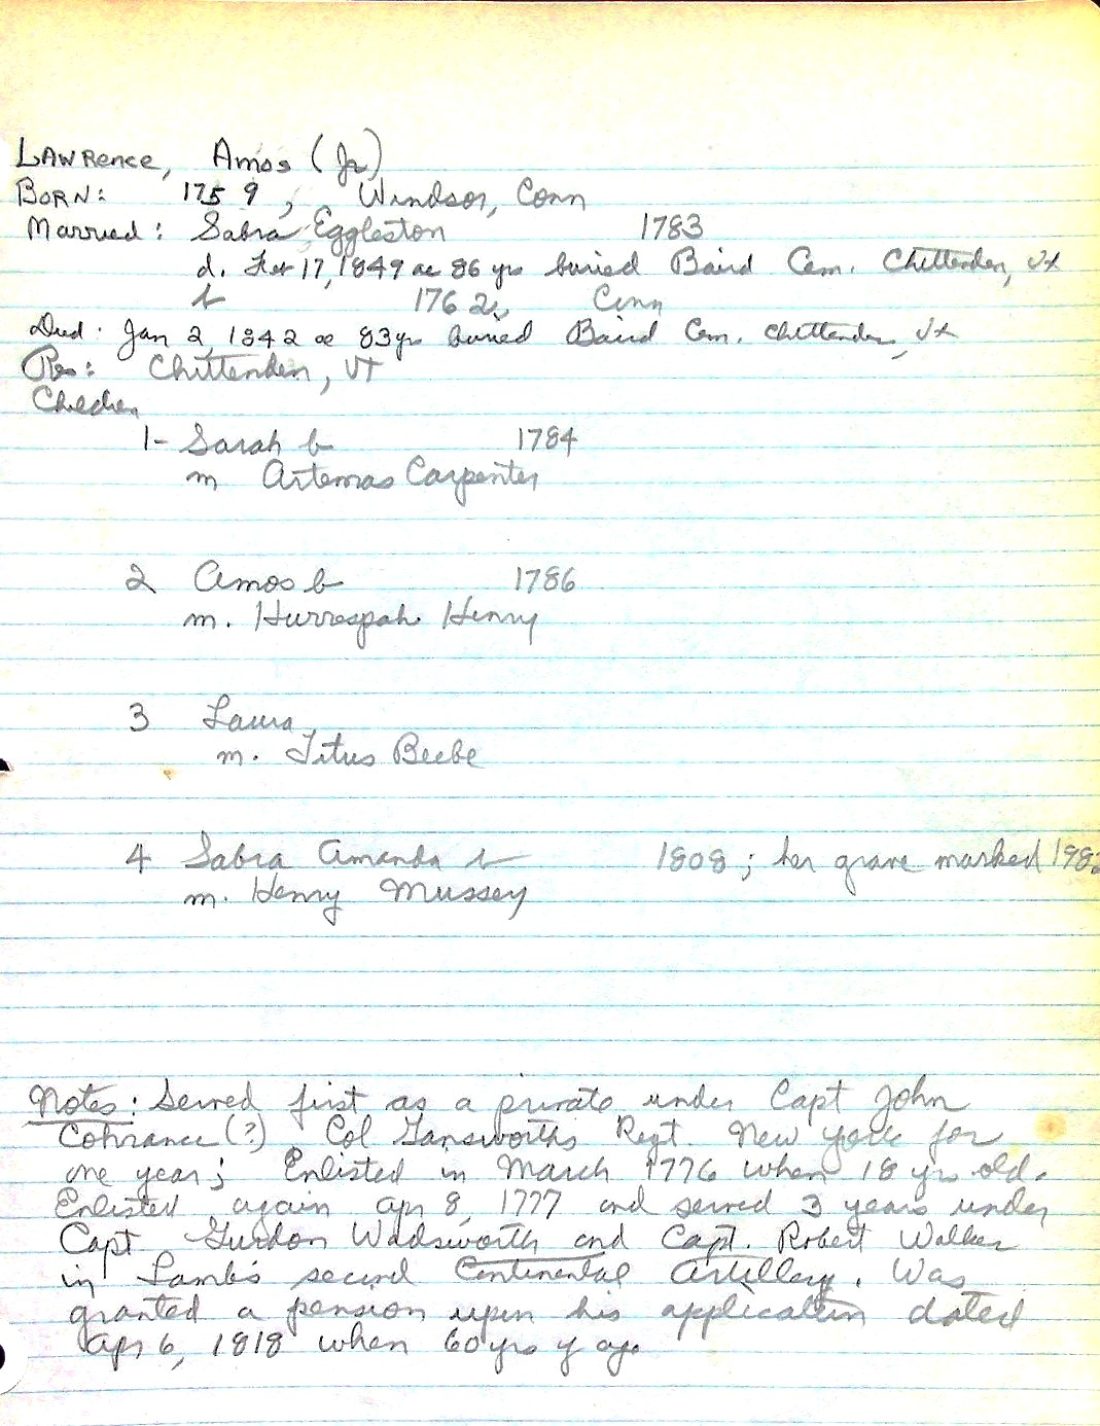 Lawrence, Amos (Jr)
Born: 1759, Windsor, Conn
Married: Sabra Eggleston 1783
d. Feb 17, 1849 ae 86 yrs buried Baird Cem. Chittenden, Vt
b 1762, Conn
Died: Jan 2, 1842 ae 83 yrs buried Baird Cem. Chittenden, Vt
Res: Chittenden, VT
Children
1- Sarah b 1784
m Artemas Carpenter
2 Amos b 1786
m. Henry
3 Laura
m. Titus Beebe
4 Sabra Amanda b 1808; her grave marked
m. Henry Mussey
Notes: Served first as a private under Capt John
Cohrance (?) Col Gansworths Regt. New York for
one year; Enlisted in March 1776 when 18 yrs old.
Enlisted again Apr 8, 1777 and served 3 years under
Capt Gurdon Wadsworth and Capt. Robert Walker
in Lamb's second Continental Artillery. Was
granted a pension upon his application dated
Apr 6, 1818 when 60 yrs of age